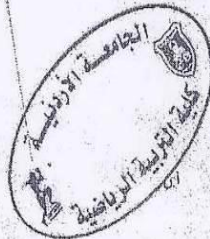 الجامعة الاردنية
كلية التربية الرياضية